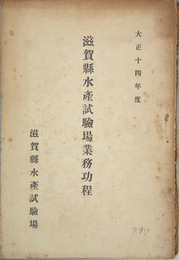 大正十四年度
滋賀縣水產試驗場業務功程
滋賀縣水產試驗場